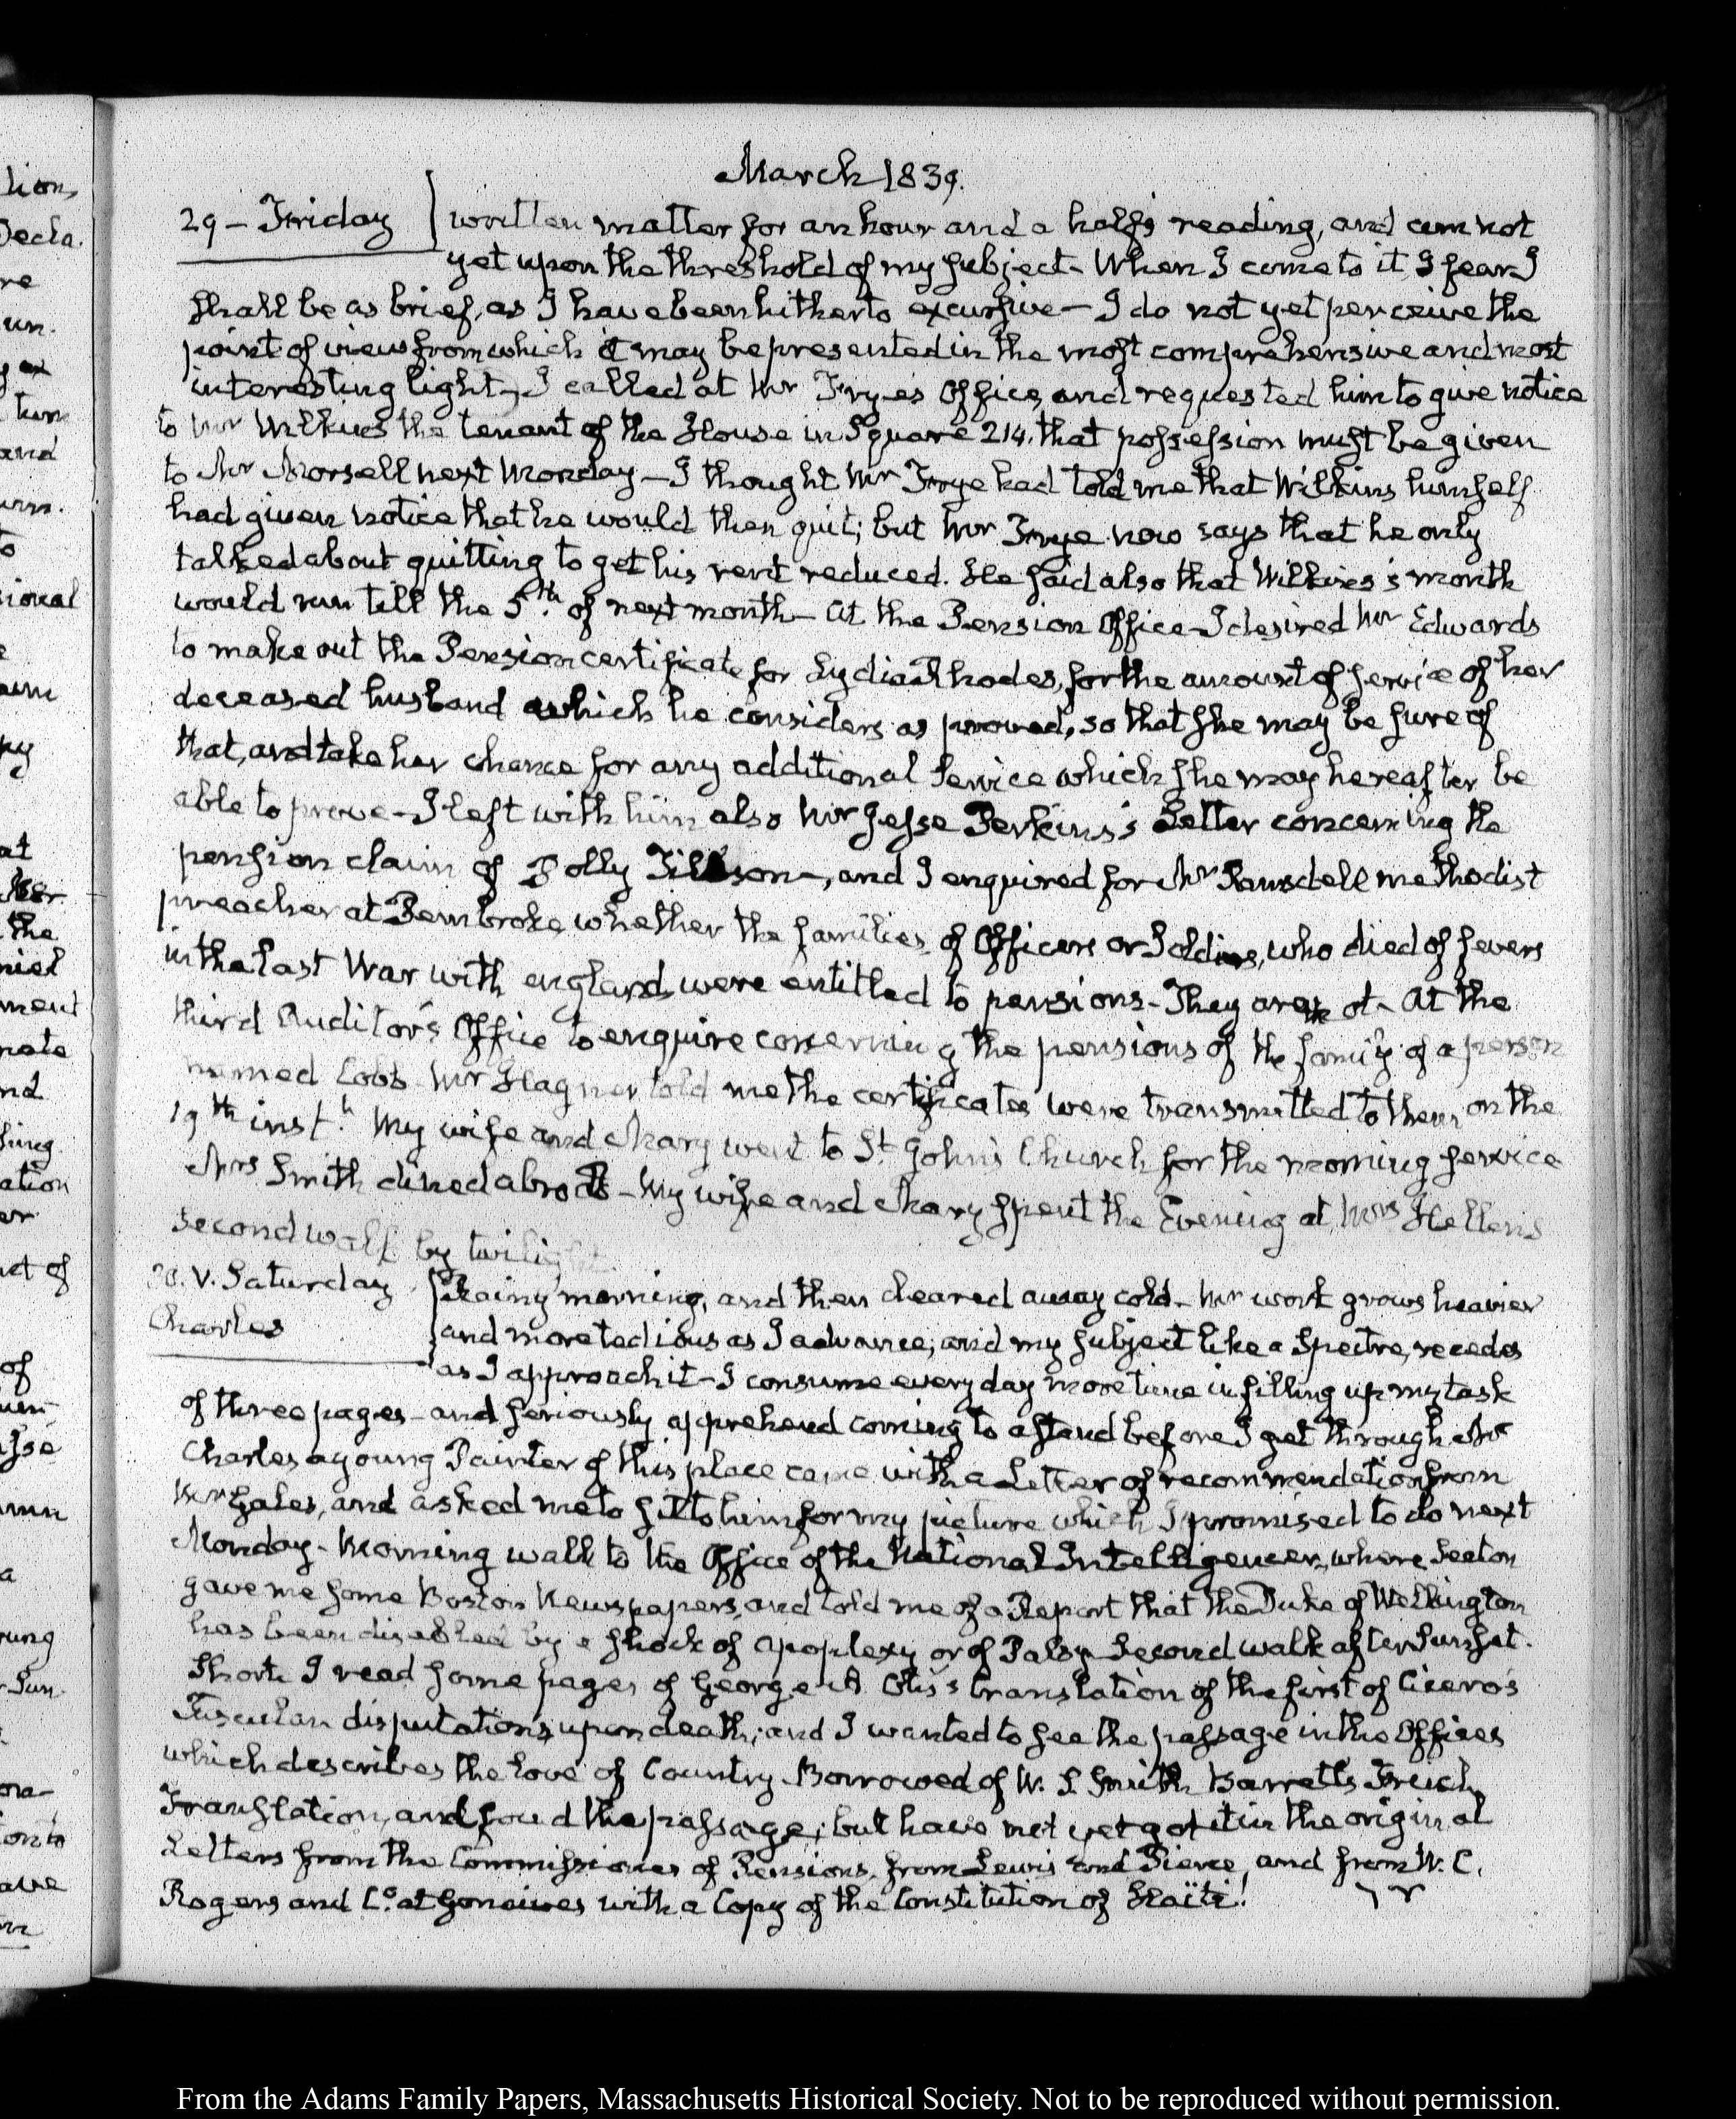 March 1839.
29 – Friday written matter for an hour and a half's reading, and am not
yet upon the threshold of my subject – When I come to it I fear I
shall be as brief, as I have been hitherto excursive – I do not yet perceive the
point of view from which it may be presented in the most comprehensive and most
interesting light – I called at Mr Frye's Office, and requested him to give notice
to Mr Wilkins the tenant of the House in Square 214. that possession must be given
to Mr Morsell next Monday – I thought Mr Frye had told me that Wilkins himself
had given notice that he would then quit; but Mr Frye now says that he only
talked about quitting to get his rent reduced. He said also that Wilkins's month
would run till the 5th. of next month – At the Pension Office I desired Mr Edwards
to make out the Pension certificate for Lydia Rhodes, for the amount of service of her
deceased husband which he considers as proved, so that she may be sure of
that, and take her chance for any additional service which she may hereafter be
able to prove – I left with him also Mr Jesse Perkins's Letter concerning the
pension claim of Polly Tillson, and I enquired for Mr Ramsdell methodist
preacher at Pembroke, whether the families of Officers or Soldiers, who died of fevers
in the last War with England, were entitled to pensions – They are not – At the
third Auditor's Office to enquire concerning the pensions of the family of a person
named Cobb. Mr Hagner told me the certificates were transmitted to them on the
19th inst. My wife and Mary went to St. John's Church for the morning service
Mrs Smith dined abroad – My wife and Mary spent the Evening at Mrs Hellen's
second walk by twilight.
30. V. Saturday Rainy morning, and then cleared away cold – My work grows heavier
Charles and more tedious as I advance; and my subject like a Spectre, recedes
as I approach it – I consume every day more time in filling up my task
of three pages – and seriously apprehend coming to a stand before I get through. Mr
Charles a young Painter of this place came with a Letter of recommendation from
Mr Gales, and asked me to sit to him for my picture which I promised to do next
Monday – Morning walk to the Office of the National Intelligencer, where Seaton
gave me some Boston Newspapers, and told me of a Report that the Duke of Wellington
has been disabled by a shock of apoplexy or of Palsy – Second walk after Sunset.
Short. I read some pages of George A. Otis's translation of the first of Cicero's
Tusculan disputations, upon death; and I wanted to see the passage in the Offices
which describes the Love of Country – Borrowed of W. S. Smith Barrett's French
Translation, and found the passage; but have not yet got it in the original
Letters from the Commissioner of Pensions, from Lewis and Pierce, and from W. C.
Rogers and Co. at Gonaives with a Copy of the Constitution of Haïti.
From the Adams Family Papers, Massachusetts Historical Society. Not to be reproduced without permission.